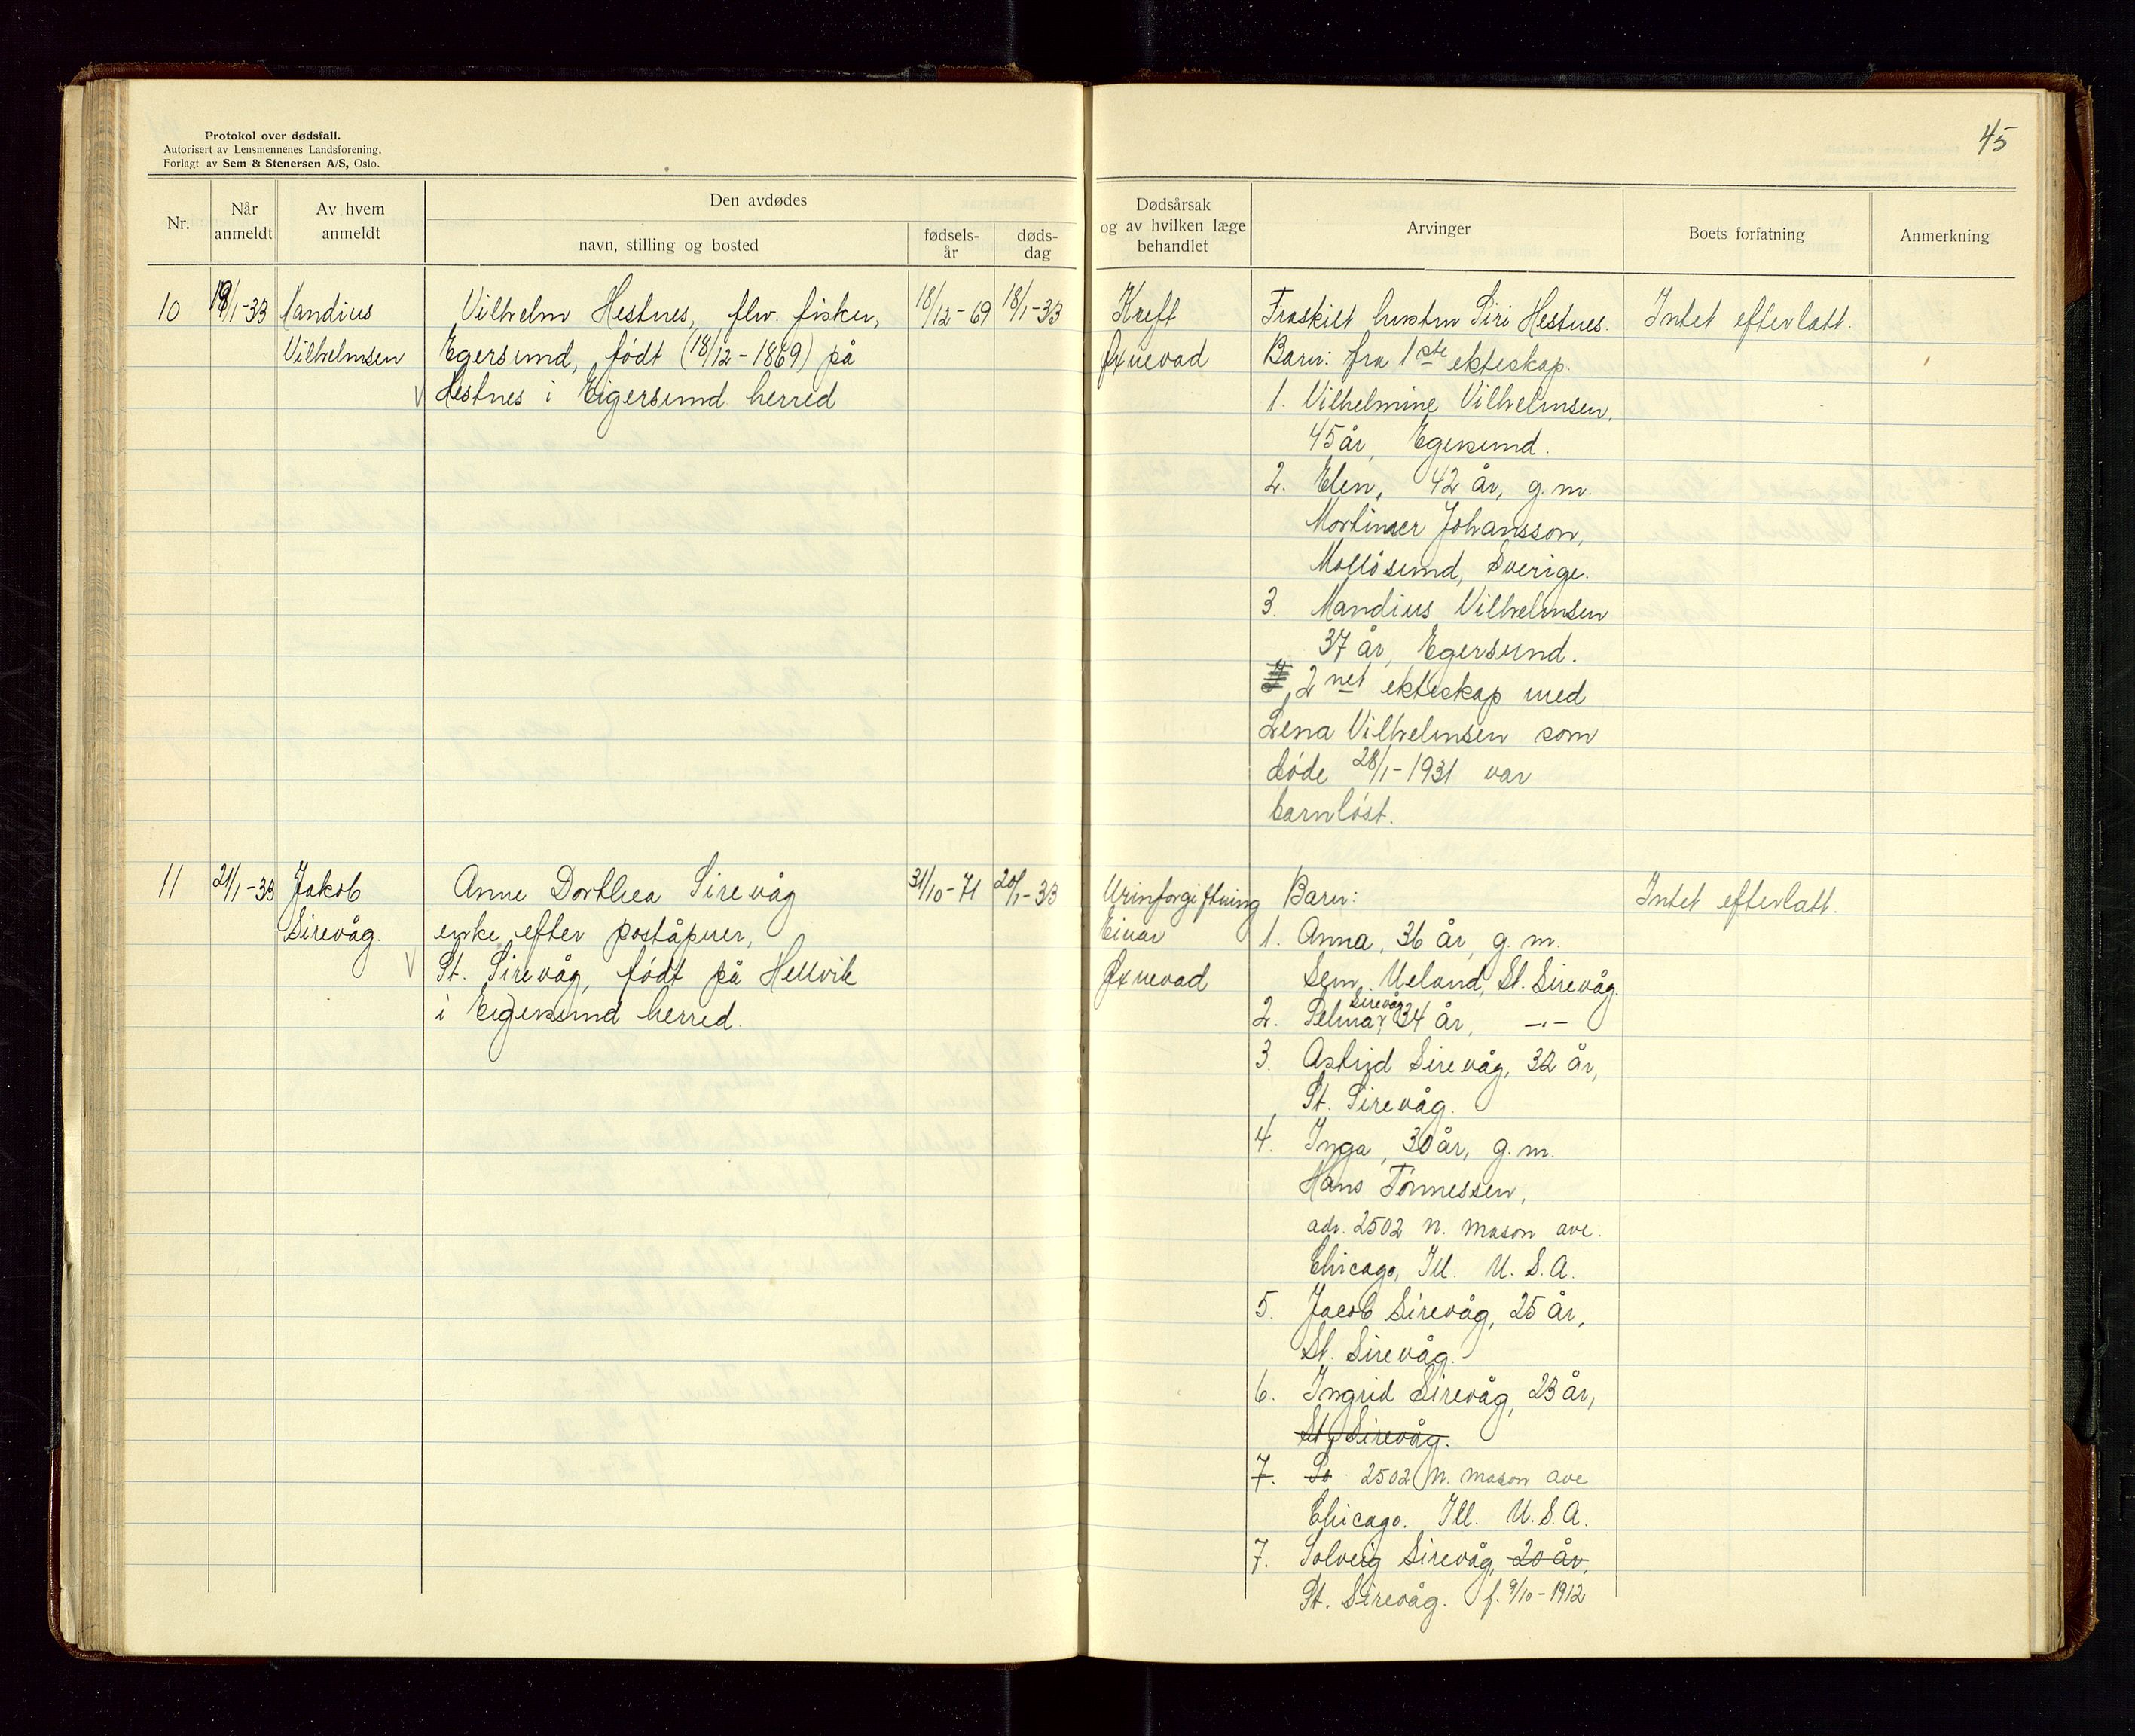 Protokol over dødsfall.
Autorisert av Lensmennenes Landsforening.
Forlagt av Sem & Stenersen A/S, Oslo.
45
Nr.
Når anmeldt
Av hvem anmeldt
Den avdødes
navn, stilling og bosted
fødsels-
år
døds-
dag
Dødsårsak
og av hvilken læge
behandlet
Arvinger
Boets forfatning
Anmerkning
10
19/1-33
Mandius
Vilhelmsen
Vilhelm Hestnes, flv. fisker,
Egersund, født (18/12-1869) på
Hestnes i Eigersund herred
18/12-69
18/1-33
Kreft
Øxnevad
Fraskilt hustru Siri Hestnes.
Barn: fra 1ste ekteskap.
1. Vilhelmine Vilhelmsen,
45 år, Egersund.
2. Elen, 42 år, g.m.
Mortimer Johansson,
Mollösund, Sverige.
3. Mandius Vilhelmsen
37 år, Egersund.
2net ekteskap med
Lena Vilhelmsen som
døde 28/1-1931 var
barnløst.
Intet efterlatt.
11
21/1-33
Jakob
Sirevåg.
Anne Dorthea Sirevåg
enke efter poståpner,
St. Sirevåg, født på Hellvik
i Eigersund herred.
31/10-71
20/1-33
Urinforgiftning
Einar
Øxnevad
Barn:
1. Anna, 36 år, g.m.
Sem. Ueland, St. Sirevåg.
2. Selmar Sirevåg 34 år, -"-
3. Astrid Sirevåg, 32 år,
St. Sirevåg.
4. Inga, 30 år, g.m.
Hans Tønnessen,
adr. 2502 N. Mason ave.
Chicago, Ill. U.S.A.
5. Jacob Sirevåg, 25 år,
St. Sirevåg.
6. Ingrid Sirevåg, 23 år,
St. Sirevåg.
7. So 2502 N. Mason ave
Chicago. Ill. U.S.A.
7. Solveig Sirevåg, 20 år,
St. Sirevåg. f. 9/10-1912
Intet efterlatt.